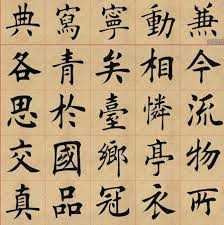 今流物所
動相憐亭衣
寧矣臺鄉冠
寫青於國品
典各思交真